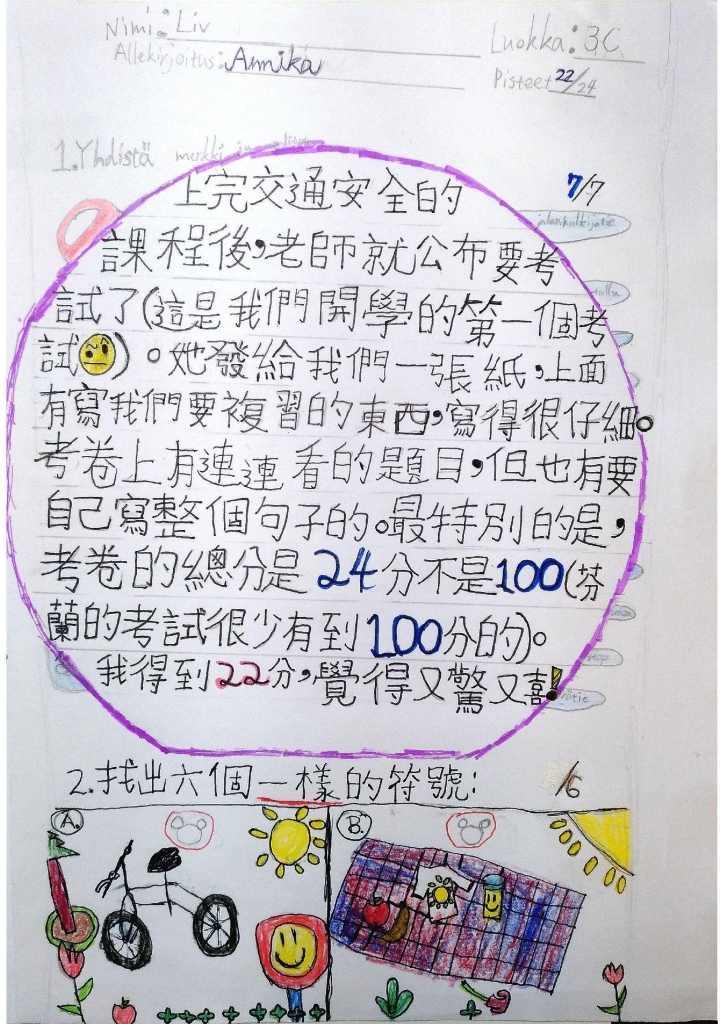 Nimi: Liv
Luokka: 3C
Allekirjoitus: Annika
Pisteet 22/24
1. Yhdistä merkki ja
7/7
上完交通安全的
jalankulkijatie
課程後，老師就公布要考
試了(這是我們開學的第一個考
試)。她發給我們一張紙，上面
有寫我們要複習的東西，寫得很仔細。
考卷上有連連看的題目，但也有要
自己寫整個句子的。最特別的是，
考卷的總分是24分不是100(芬
蘭的考試很少有到100分的)。
stop
我得到22分，覺得又驚又喜!
2.找出六個一樣的符號：
/6
A.
B.